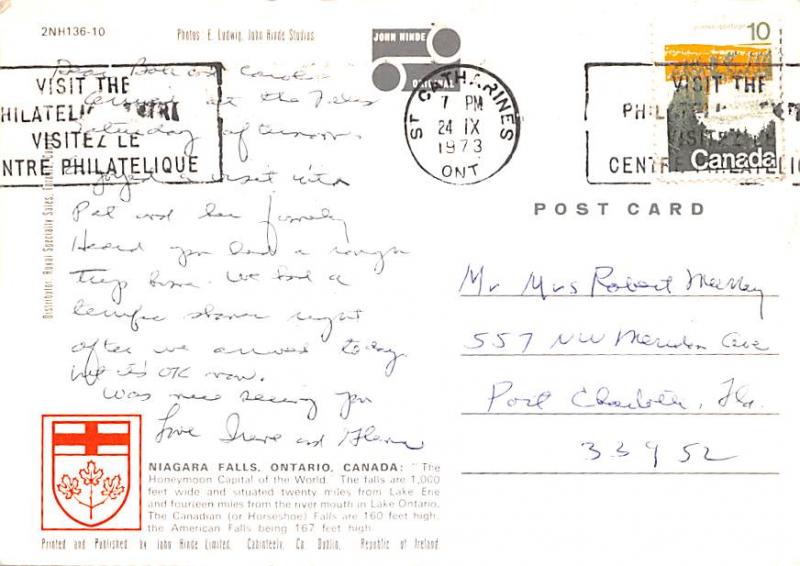 2NH136-10
Photos: E. Ludwig, John Hinde Studios
JOHN HINDE
ORIGINAL
VISIT THE
PHILATELIC
VISITEZ LE
CENTRE PHILATELIQUE
ST. CATHARINES
7 PM
24 IX
1973
ONT
VISIT THE
VISITEZ LE
CENTRE PHILATELIQUE
10
Canada
Distributor: Royal Specialty Sales,
POST CARD
Dear Bob and
at the Falls
Saturday afternoon
a visit with
Pat and her family
Heard you had a rough
trip home. We had a
terrific storm right
after we arrived today.
but it's OK now.
Was nice seeing you
Love Irene and
Mr Mrs Robert
557 NW Meridon Ave
Port Charlotte, Fla.
33952
NIAGARA FALLS, ONTARIO, CANADA: "The
Honeymoon Capital of the World. The falls are 1,000
feet wide and situated twenty miles from Lake Erie
and fourteen miles from the river mouth in Lake Ontario.
The Canadian (or Horseshoe) Falls are 160 feet high,
the American Falls being 167 feet high.
Printed and Published by John Hinde Limited, Cabinteely, Co. Dublin, Republic of Ireland